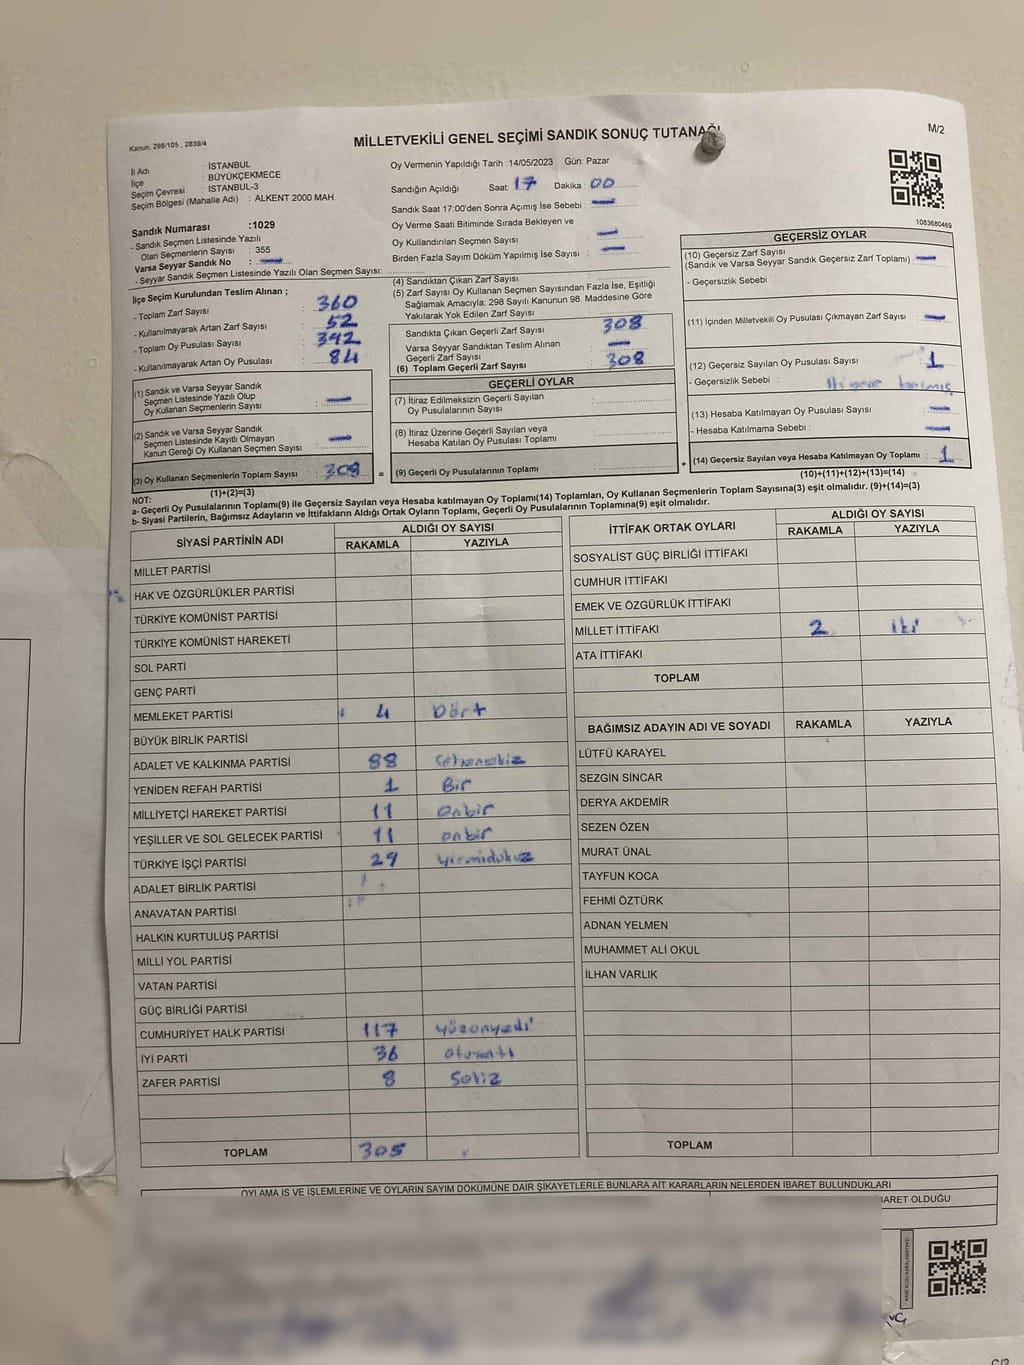 Kanun; 298/105 , 2839/4
MİLLETVEKİLİ GENEL SEÇİMİ SANDIK SONUÇ TUTANAĞI
M/2
İl Adı : İSTANBUL
İlçe : BÜYÜKÇEKMECE
Seçim Çevresi : İSTANBUL-3
Seçim Bölgesi (Mahalle Adı) : ALKENT 2000 MAH.
Oy Vermenin Yapıldığı Tarih : 14/05/2023 Gün: Pazar
Sandığın Açıldığı Saat: 17 Dakika : 00
Sandık Saat 17:00'den Sonra Açımış İse Sebebi : —
Oy Verme Saati Bitiminde Sırada Bekleyen ve
Oy Kullandırılan Seçmen Sayısı : —
Birden Fazla Sayım Döküm Yapılmış İse Sayısı : —
Sandık Numarası :1029
- Sandık Seçmen Listesinde Yazılı
Olan Seçmenlerin Sayısı : 355
Varsa Seyyar Sandık No : —
- Seyyar Sandık Seçmen Listesinde Yazılı Olan Seçmen Sayısı:
İlçe Seçim Kurulundan Teslim Alınan ;
- Toplam Zarf Sayısı : 360
- Kullanılmayarak Artan Zarf Sayısı : 52
- Toplam Oy Pusulası Sayısı : 392
- Kullanılmayarak Artan Oy Pusulası : 84
(1) Sandık ve Varsa Seyyar Sandık
Seçmen Listesinde Yazılı Olup
Oy Kullanan Seçmenlerin Sayısı : —
(2) Sandık ve Varsa Seyyar Sandık
Seçmen Listesinde Kayıtlı Olmayan
Kanun Gereği Oy Kullanan Seçmen Sayısı : —
(3) Oy Kullanan Seçmenlerin Toplam Sayısı : 308
(1)+(2)=(3)
(4) Sandıktan Çıkan Zarf Sayısı :
(5) Zarf Sayısı Oy Kullanan Seçmen Sayısından Fazla İse, Eşitliği
Sağlamak Amacıyla; 298 Sayılı Kanunun 98. Maddesine Göre
Yakılarak Yok Edilen Zarf Sayısı :
Sandıkta Çıkan Geçerli Zarf Sayısı : 308
Varsa Seyyar Sandıktan Teslim Alınan
Geçerli Zarf Sayısı : —
(6) Toplam Geçerli Zarf Sayısı : 308
GEÇERLİ OYLAR
(7) İtiraz Edilmeksizin Geçerli Sayılan
Oy Pusulalarının Sayısı :
(8) İtiraz Üzerine Geçerli Sayılan veya
Hesaba Katılan Oy Pusulası Toplamı :
= (9) Geçerli Oy Pusulalarının Toplamı : +
1083680469
GEÇERSİZ OYLAR
(10) Geçersiz Zarf Sayısı
(Sandık ve Varsa Seyyar Sandık Geçersiz Zarf Toplamı) : —
- Geçersizlik Sebebi :
(11) İçinden Milletvekili Oy Pusulası Çıkmayan Zarf Sayısı : —
(12) Geçersiz Sayılan Oy Pusulası Sayısı : 1
- Geçersizlik Sebebi :
(13) Hesaba Katılmayan Oy Pusulası Sayısı : —
- Hesaba Katılmama Sebebi : —
(14) Geçersiz Sayılan veya Hesaba Katılmayan Oy Toplamı : 1
(10)+(11)+(12)+(13)=(14)
NOT:
a- Geçerli Oy Pusulalarının Toplamı(9) ile Geçersiz Sayılan veya Hesaba katılmayan Oy Toplamı(14) Toplamları, Oy Kullanan Seçmenlerin Toplam Sayısına(3) eşit olmalıdır. (9)+(14)=(3)
b- Siyasi Partilerin, Bağımsız Adayların ve İttifakların Aldığı Ortak Oyların Toplamı, Geçerli Oy Pusulalarının Toplamına(9) eşit olmalıdır.
SİYASİ PARTİNİN ADI ALDIĞI OY SAYISI
RAKAMLA YAZIYLA
MİLLET PARTİSİ
HAK VE ÖZGÜRLÜKLER PARTİSİ
TÜRKİYE KOMÜNİST PARTİSİ
TÜRKİYE KOMÜNİST HAREKETİ
SOL PARTİ
GENÇ PARTİ
MEMLEKET PARTİSİ 4 Dört
BÜYÜK BİRLİK PARTİSİ
ADALET VE KALKINMA PARTİSİ 88 Seksensekiz
YENİDEN REFAH PARTİSİ 1 Bir
MİLLİYETÇİ HAREKET PARTİSİ 11 Onbir
YEŞİLLER VE SOL GELECEK PARTİSİ 11 onbir
TÜRKİYE İŞÇİ PARTİSİ 29 yirmidokuz
ADALET BİRLİK PARTİSİ
ANAVATAN PARTİSİ
HALKIN KURTULUŞ PARTİSİ
MİLLİ YOL PARTİSİ
VATAN PARTİSİ
GÜÇ BİRLİĞİ PARTİSİ
CUMHURİYET HALK PARTİSİ 117 yüzonyedi
İYİ PARTİ 36 otuzaltı
ZAFER PARTİSİ 8 Sekiz
TOPLAM 305
İTTİFAK ORTAK OYLARI ALDIĞI OY SAYISI
RAKAMLA YAZIYLA
SOSYALİST GÜÇ BİRLİĞİ İTTİFAKI
CUMHUR İTTİFAKI
EMEK VE ÖZGÜRLÜK İTTİFAKI
MİLLET İTTİFAKI 2 iki
ATA İTTİFAKI
TOPLAM
BAĞIMSIZ ADAYIN ADI VE SOYADI RAKAMLA YAZIYLA
LÜTFÜ KARAYEL
SEZGİN SİNCAR
DERYA AKDEMİR
SEZEN ÖZEN
MURAT ÜNAL
TAYFUN KOCA
FEHMİ ÖZTÜRK
ADNAN YELMEN
MUHAMMET ALİ OKUL
İLHAN VARLIK
TOPLAM
OYLAMA İŞ VE İŞLEMLERİNE VE OYLARIN SAYIM DÖKÜMÜNE DAİR ŞİKAYETLERLE BUNLARA AİT KARARLARIN NELERDEN İBARET BULUNDUKLARI
BARET OLDUĞU